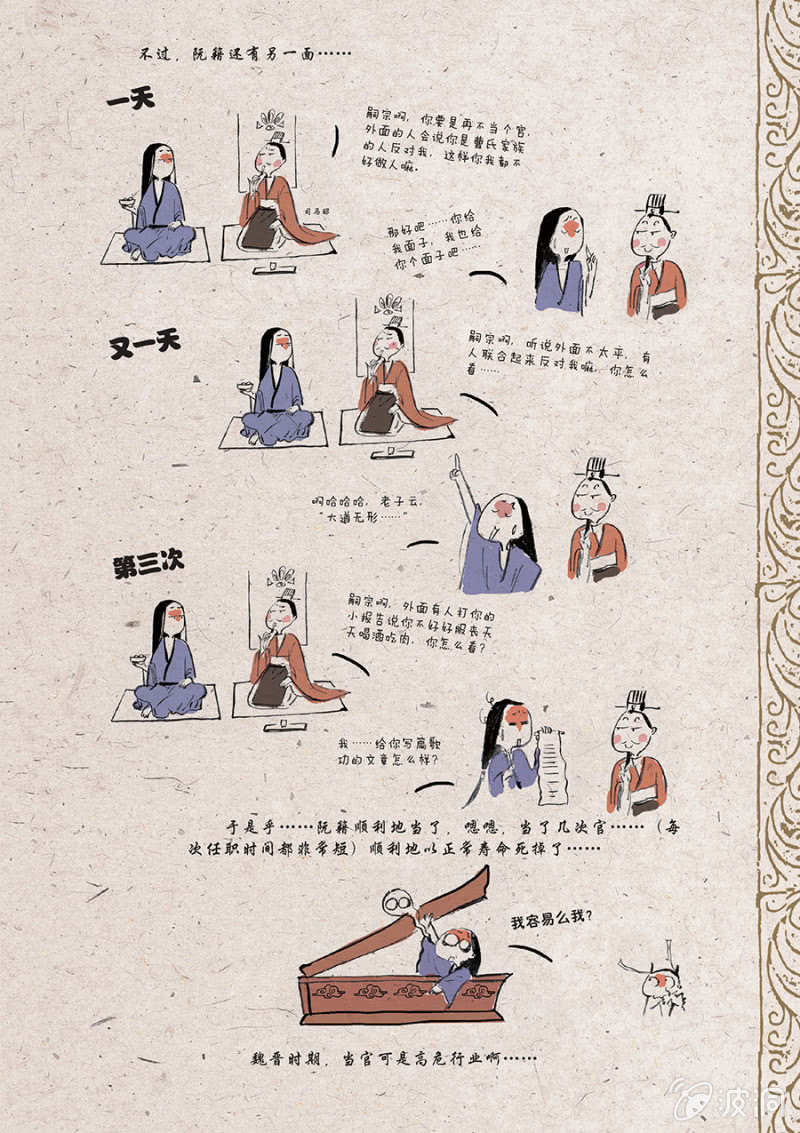 不过，阮籍还有另一面……
一天
嗣宗啊，你要是再不当个官，
外面的人会说你是曹氏家族
的人反对我，这样你我都不
好做人嘛。
司马昭
那好吧……你给
我面子，我也给
你个面子吧……
又一天
嗣宗啊，听说外面不太平，有
人联合起来反对我嘛，你怎么
看……
啊哈哈哈，老子云，
“大道无形……”
第三次
嗣宗啊，外面有人打你的
小报告说你不好好服丧天
天喝酒吃肉，你怎么看？
我……给你写篇歌
功的文章怎么样？
于是乎……阮籍顺利地当了，嗯嗯，当了几次官……（每
次任职时间都非常短）顺利地以正常寿命死掉了……
我容易么我？
魏晋时期，当官可是高危行业啊……
波洞